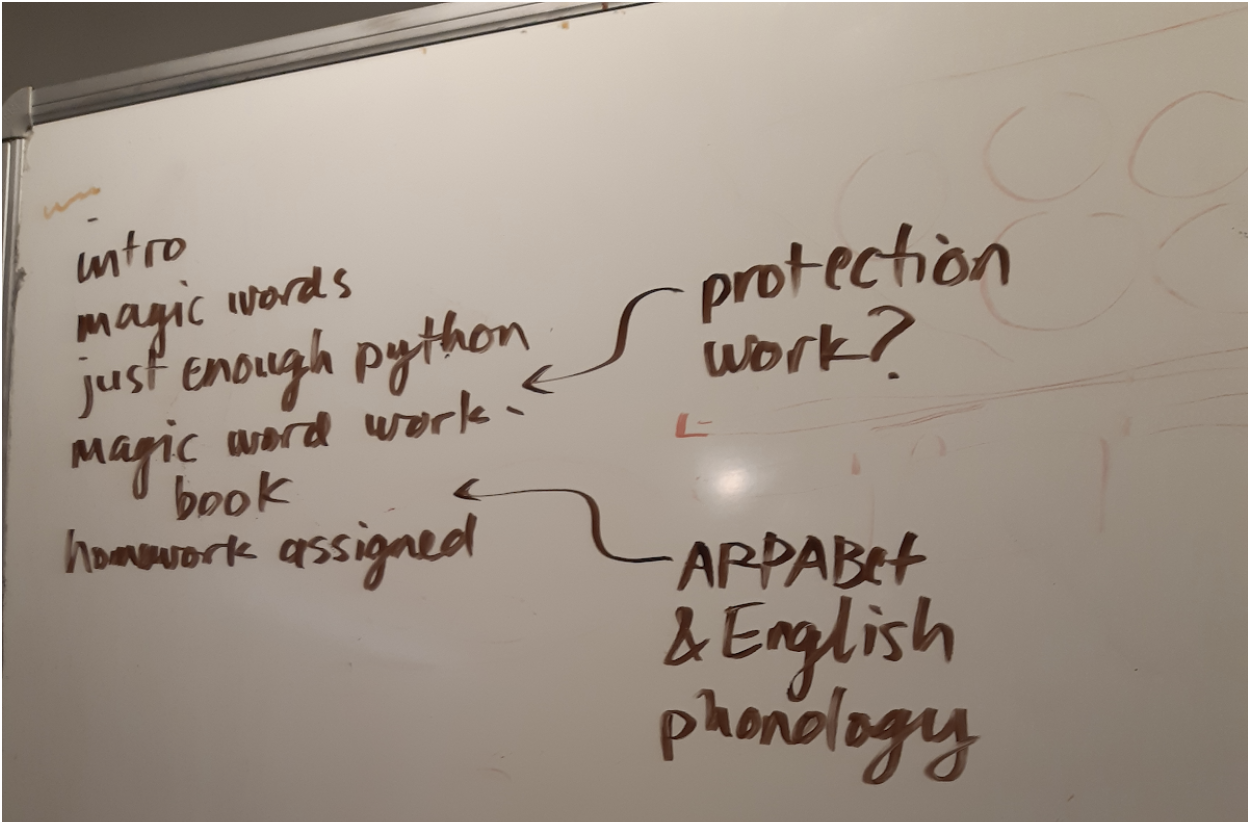 intro
magic words
just enough python
magic word work-
book
homework assigned
protection
work?
ARPABet
& English
phonology